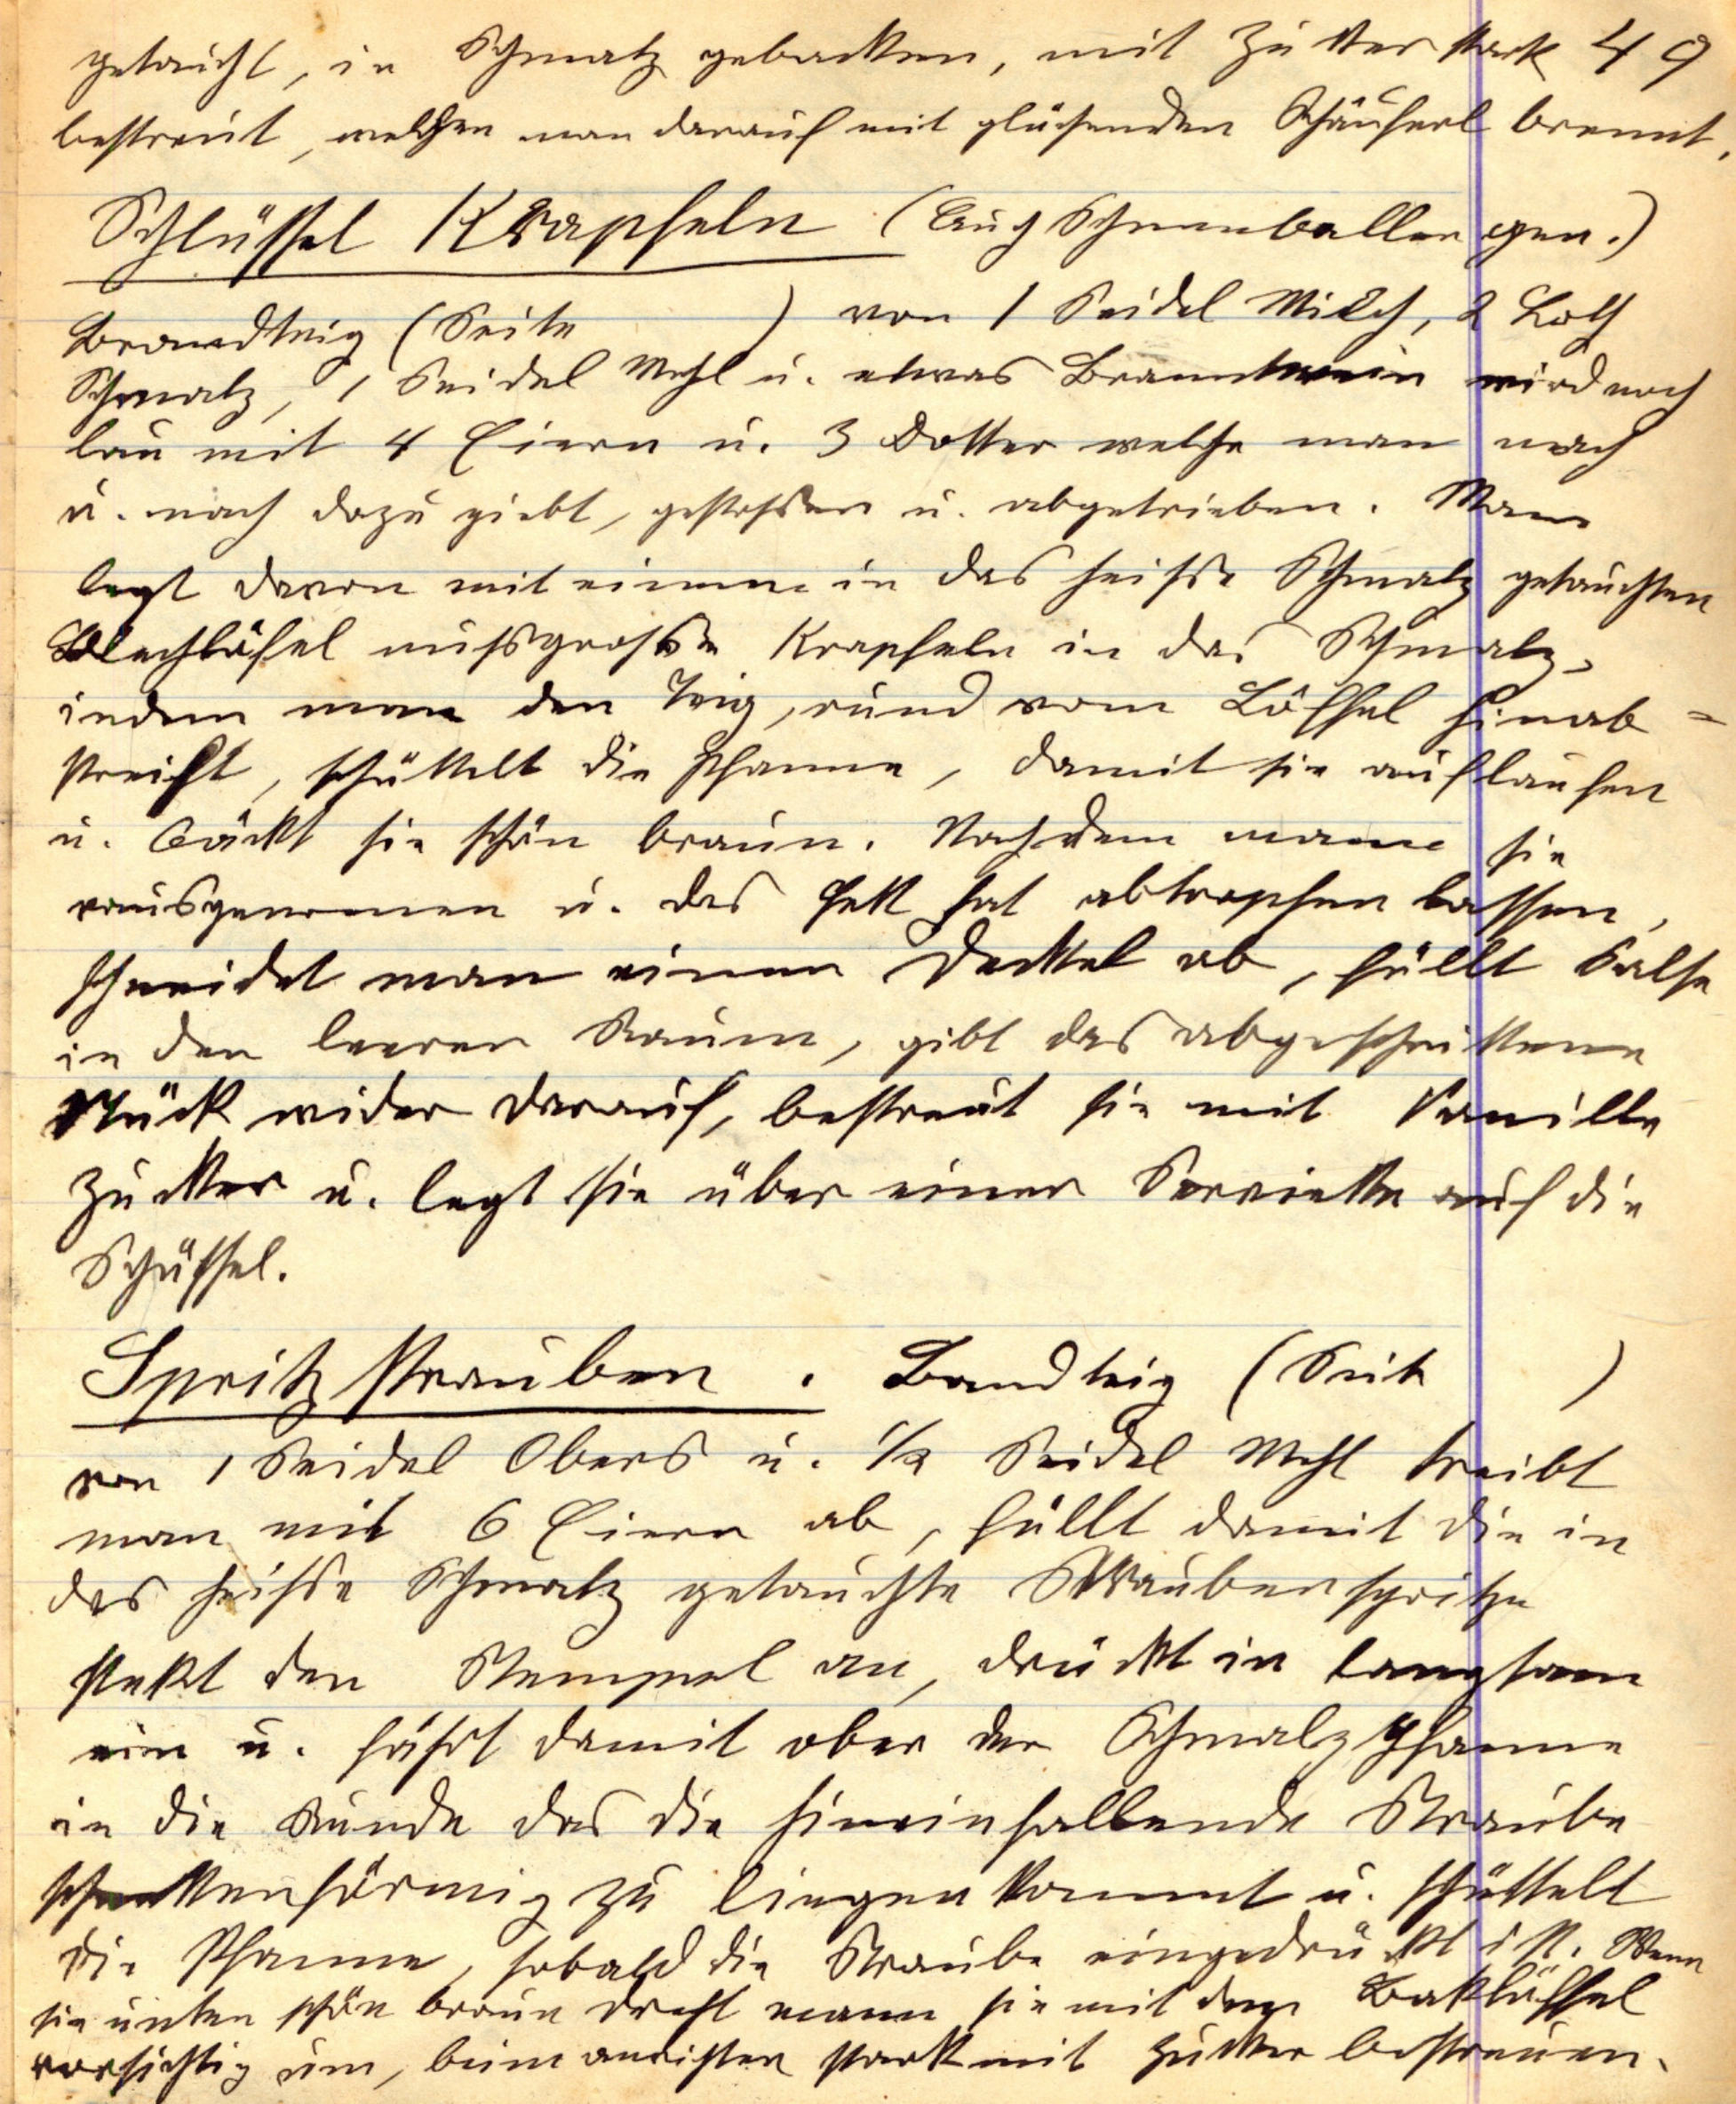 getaucht, in Schmalz gebacken, mit Zucker stark 49
bestreut, welchen man darauf mit glühenden Schäuferl brennt.
Schlüssel Krapfeln (Auch Schneeballen gen.)
Brandteig (Seite ) von 1 Seidel Milch, 2 Loth
Schmalz, 1 Seidel Mehl u. etwas Branntwein wird noch
lau mit 4 Eiern u. 3 Dotter welche man nach
u. nach dazu giebt, gestossen u. abgetrieben. Man
legt davon mit einem in das heisse Schmalz getauchten
Blechlöfel nussgrosse Krapfeln in das Schmalz,
indem man den Teig, rund vom Löffel hinab=
streift, schüttelt die Pfanne, damit sie auflaufen
u. bäckt sie schön braun. Nachdem mann sie
rausgenomen u. das Fett hat abtropfen lassen,
schneidet man einen Deckel ab, füllt Salse
in den leeren Raum, gibt das abgeschnittene
Stück wider darauf, bestreut sie mit Vanille
Zucker u. legt sie über einer Serviette auf die
Schüssel.
Spritzstrauben. Bandteig (Seite )
von 1 Seidel Obers u. 1/2 Seidel Mehl treibt
man mit 6 Eiern ab, füllt damit die in
das heisse Schmalz getauchte Straubenspritze
stekt den Stempel an, drückt in langsam
ein u. fährt damit ober der Schmalzpfanne
in die Runde das die hineinfallende Straube
schneckenförmig zu liegen kommt u. schüttelt
die Pfanne, sobald die Straube eingedrückt ist. Wenn
sie unten schön braun dreht mann sie mit dem Baklöffel
vorsichtig um, beim anrichten stark mit Zucker bestreuen.